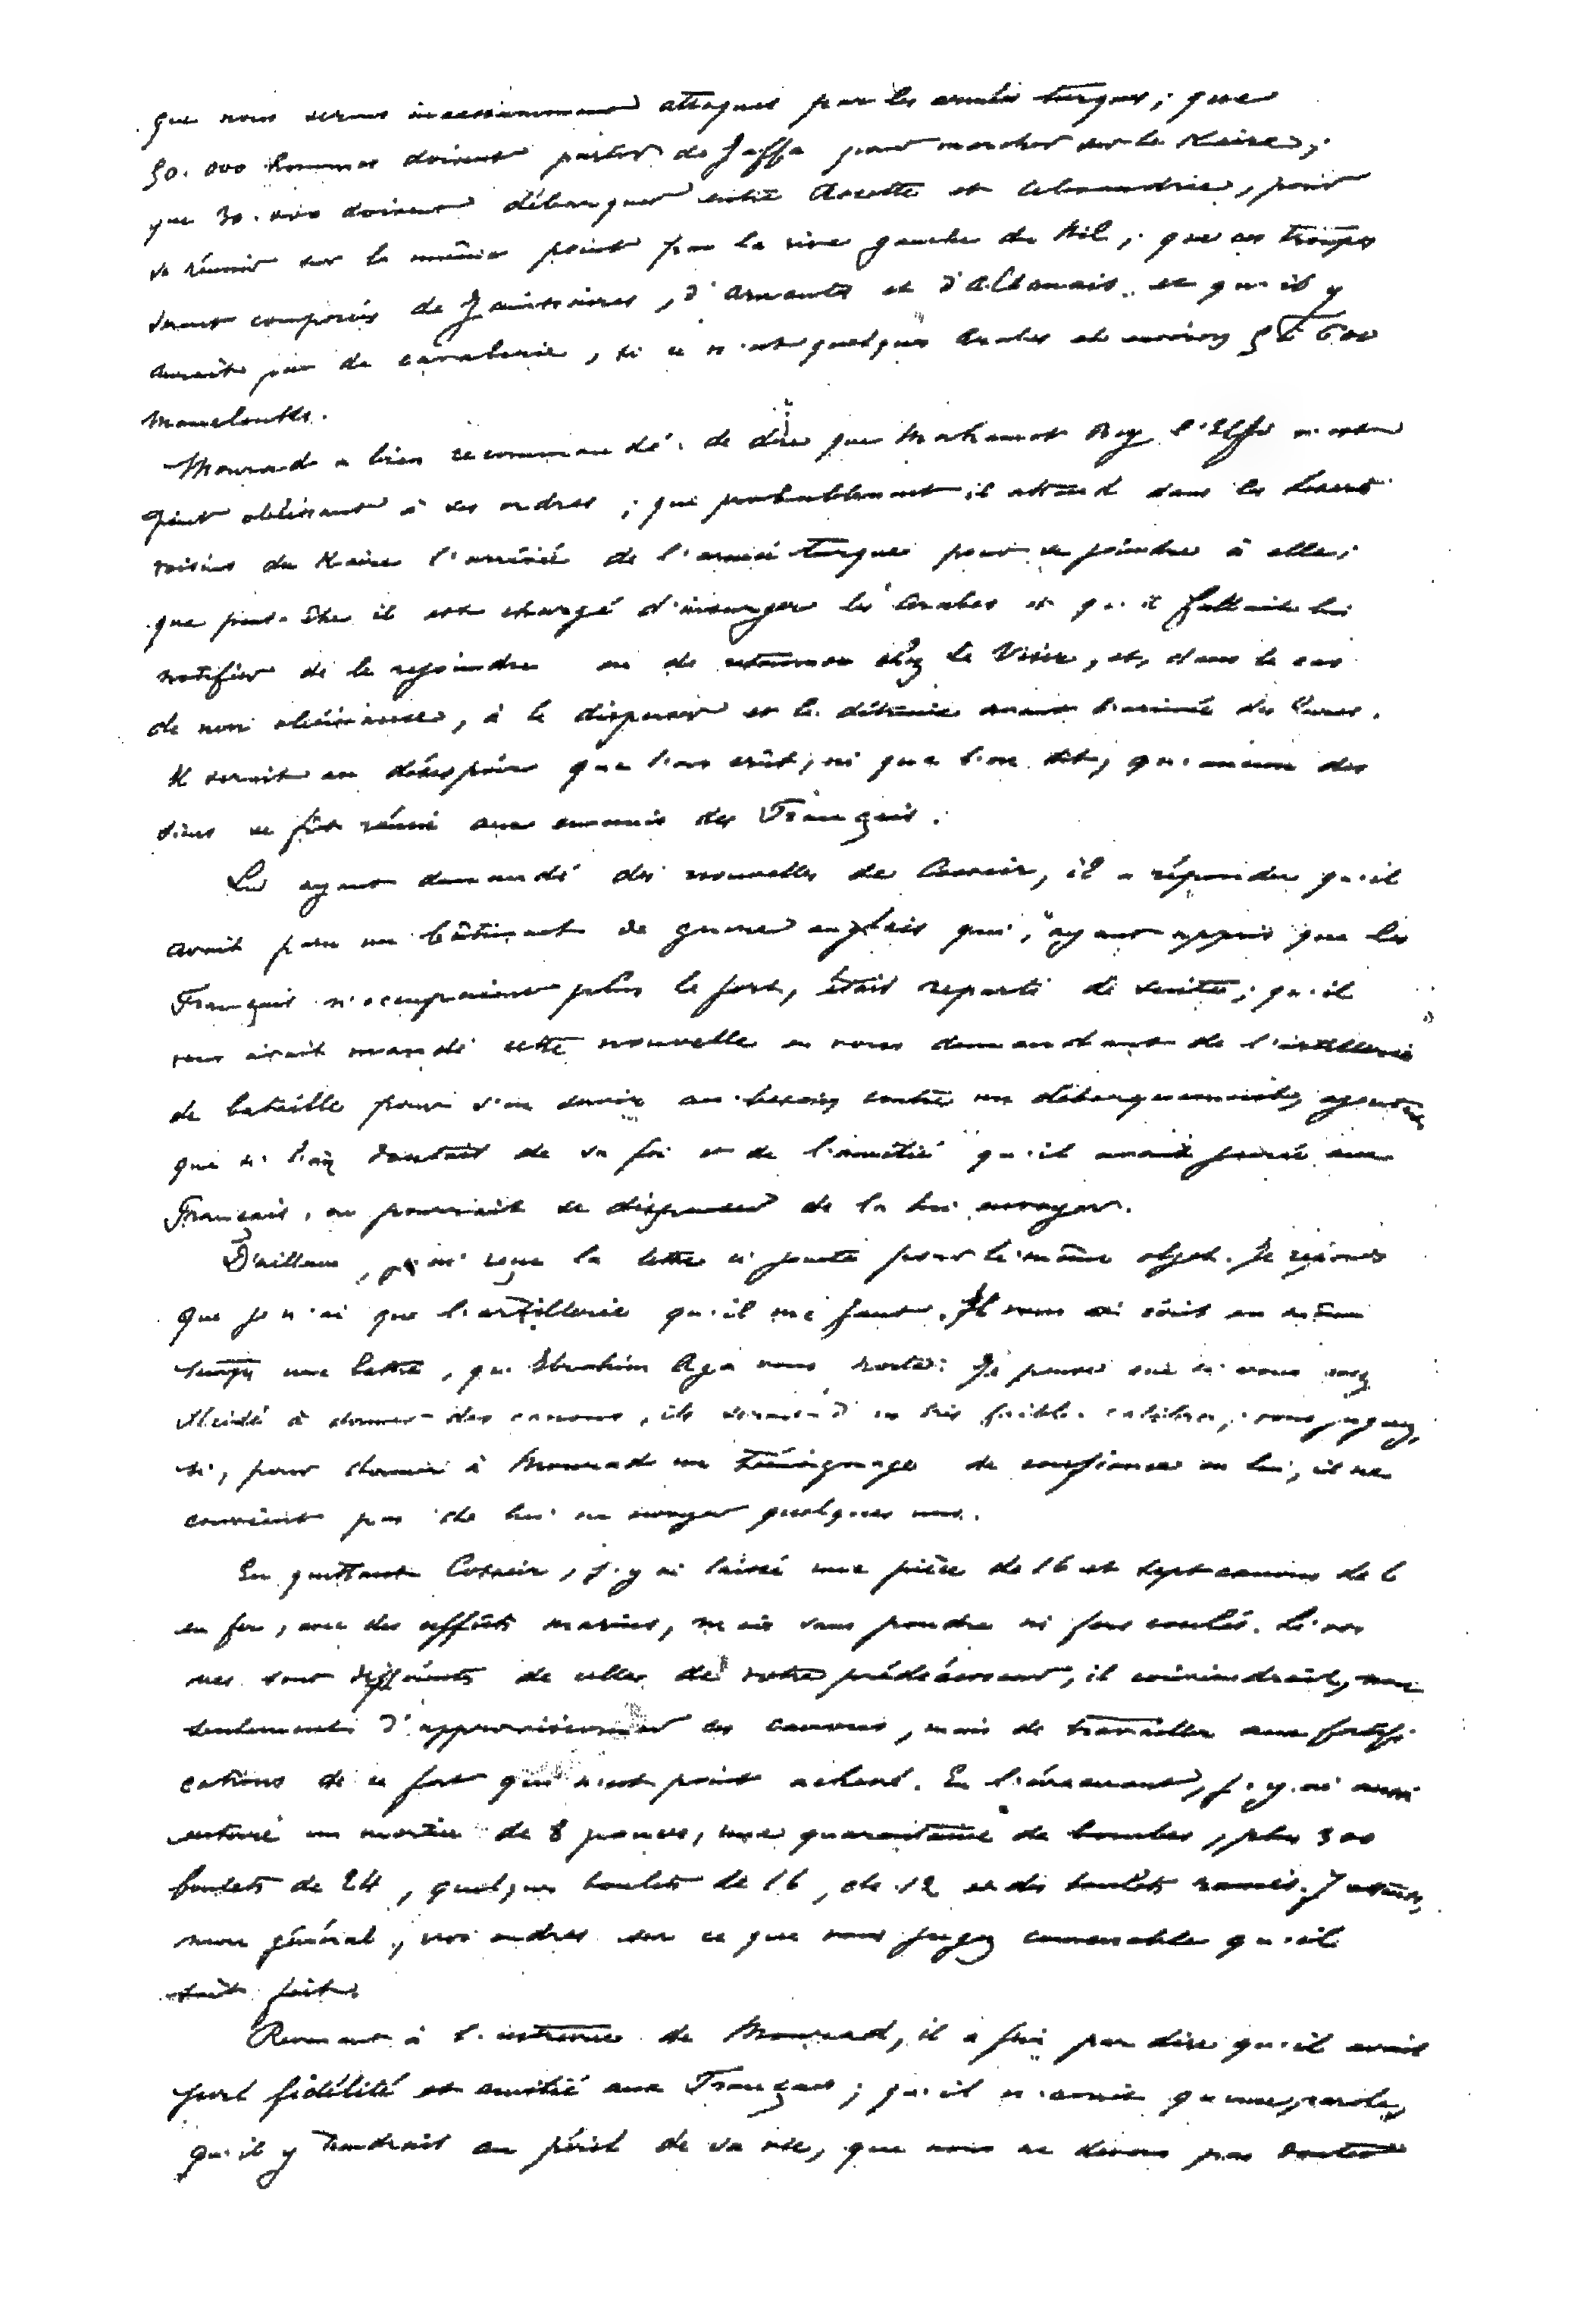 que nous serons incessamment attaqués par les armées turques ; que
50.000 hommes doivent partir de Jaffa pour marcher sur le Kaire ;
que 30.000 doivent débarquer entre Rosette et Alexandrie, pour
se réunir sur le même point par la rive gauche du Nil ; que ces troupes
seront composées de Janissaires, d'Arnautes et d'Albanais, et qu'il y
aurait peu de cavalerie, si ce n'est quelques Arabes et environ 5 à 600
Mamelouks.
Mourad a bien recommandé de dire que Mohamet Bey l'Elfi n'est
point obéissant à ses ordres ; que probablement il attend dans les déserts
voisins du Kaire l'arrivée de l'armée turque pour se joindre à elle ;
que peut-être il est chargé d'insurger les Arabes et qu'il fallait lui
notifier de le rejoindre ou de retourner chez le Visir, et, dans le cas
de non obéissance, à le disperser et le détruire avant l'arrivée des Turcs.
Il serait au désespoir que l'on crût, ni que l'on dît, qu'aucun des
siens se fût réuni aux ennemis des Français.
Lui ayant demandé des nouvelles de Cosseir, il a répondu qu'il
avait paru un bâtiment de guerre anglais qui, ayant appris que les
Français n'occupaient plus le fort, était reparti de suite ; qu'il
vous avait mandé cette nouvelle en vous demandant de l'artillerie
de bataille pour s'en servir au besoin contre un débarquement, ajoutant
que si l'on doutait de sa foi et de l'amitié qu'il avait jurée aux
Français, on pourrait se dispenser de la lui envoyer.
D'ailleurs, j'ai reçu la lettre ci jointe pour le même objet. Je réponds
que je n'ai que l'artillerie qu'il me faut. Il vous écrit en même
temps une lettre, qu'Ibrahim Aga vous porte. Je pense que si vous
décidé à donner des canons, ils seraient d'un très faible calibre ; vous jugerez
si, pour donner à Mourad un témoignage de confiance en lui, il ne
convient pas de lui en envoyer quelques uns.
En quittant Cosseir, j'y ai laissé une pièce de 16 et sept canons de 6
en fer, avec des affûts marins, mais sans poudre ni fers coulés. Si vos
vues sont différentes de celles de votre prédécesseur, il conviendrait, non
seulement d'approvisionner ces canons, mais de travailler aux fortifi-
cations de ce fort qui n'est point achevé. En l'évacuant, j'y ai aussi
enterré un mortier de 8 pouces, une quarantaine de bombes, plus 300
boulets de 24, quelques boulets de 16, de 12 et des boulets ramés. J'attends,
mon général, vos ordres sur ce que vous jugez convenable qu'il
soit fait.
Revenant à l'entrevue de Mourad, il a fini par dire qu'il avait
juré fidélité et amitié aux Français ; qu'il n'avait qu'une parole,
qu'il y tiendrait au péril de sa vie, que nous ne devons pas douter